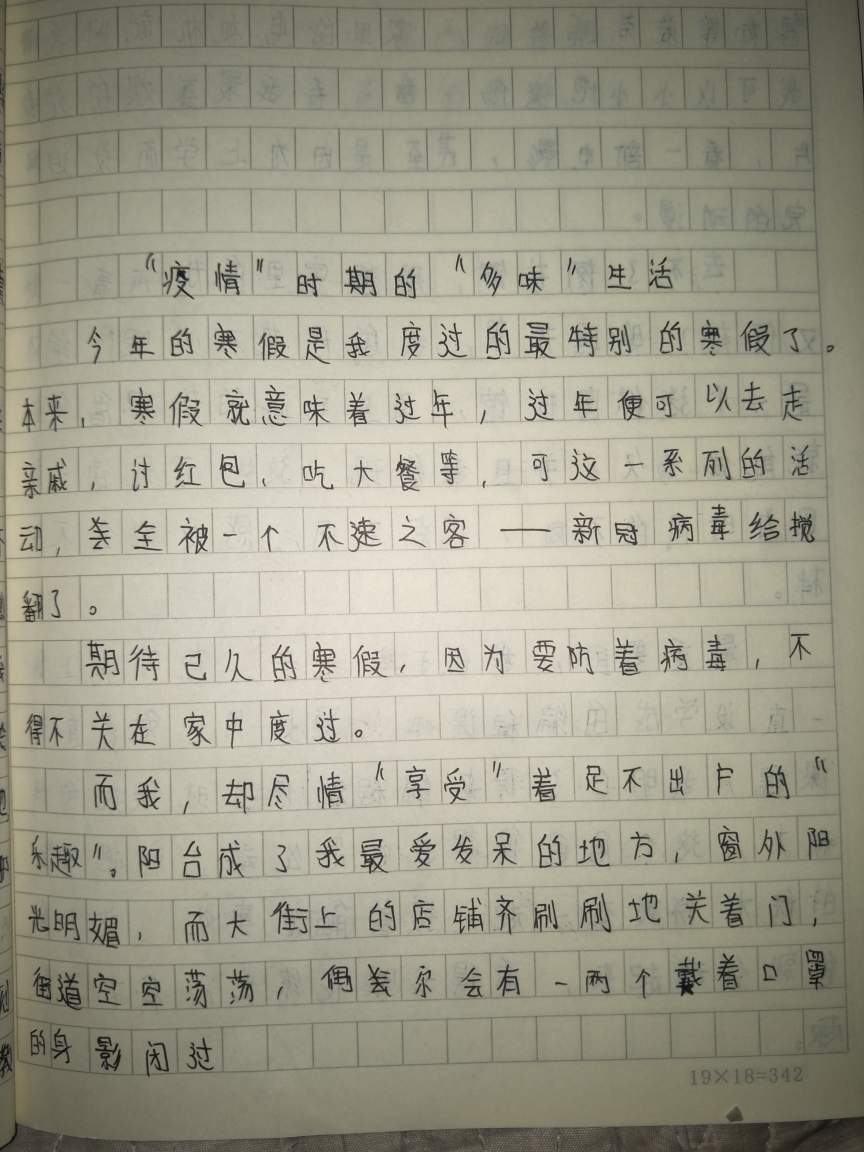 “疫情”时期的“多味”生活
今年的寒假是我度过的最特别的寒假了。
本来，寒假就意味着过年，过年便可以去走
亲戚，讨红包、吃大餐等，可这一系列的活
动，全被一个不速之客——新冠病毒给搅
翻了。
期待已久的寒假，因为要防着病毒，不
得不关在家中度过。
而我，却尽情“享受”着足不出户的“
乐趣”。阳台成了我最爱发呆的地方，窗外阳
光明媚，而大街上的店铺齐刷刷地关着门，
街道空空荡荡，偶尔会有一两个戴着口罩
的身影闭过
19×18=342